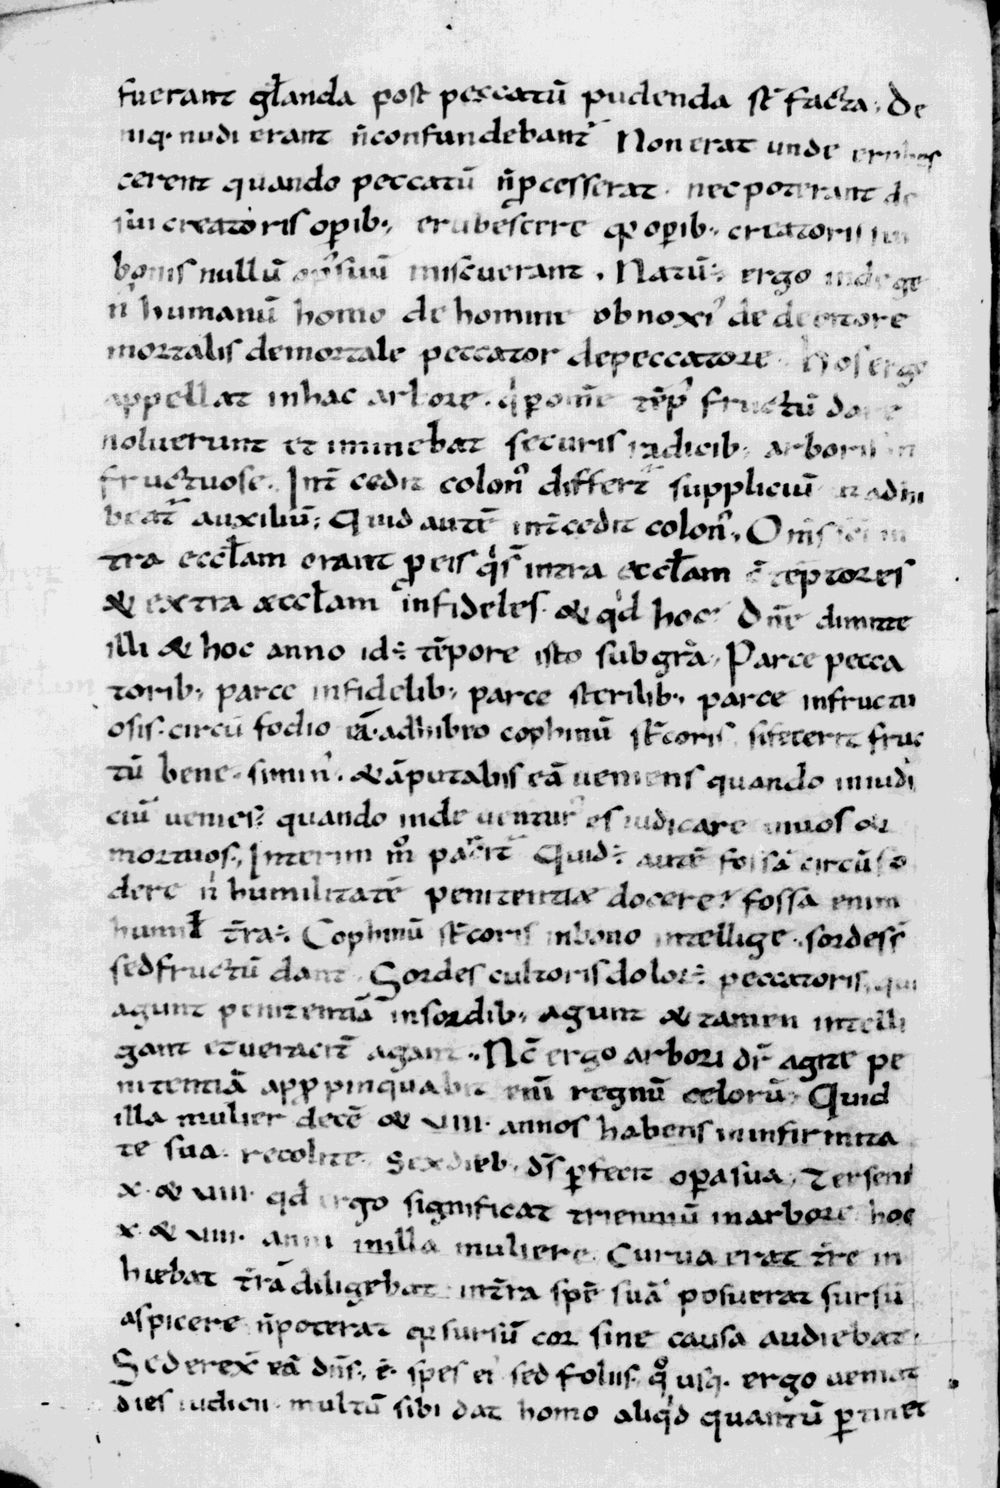 fuerant gl̄anda post peccatū pudenda st̄ facta; De
niq· nudi erant n̄ confundebant᷑ Non erat unde erubes
cerent quando peccatū n̄ p̄cesserat· nec poterant de
sui creatoris opib; erubescere q̄ opib; creatoris sui
bonis nullū op᷒ suū miscuerant· Natū ÷ ergo inde ge
n᷒ humanū homo de homine obnoxi᷒ de debitore
mortalis de mortale peccator de peccatore· Hos ergo
appellat in hac arbore· q̇ p om̄e tēp᷒ fructū dare
noluerunt et iminebat securis radicib; arboris in
fructuose· Int̄ cedit colon᷒ differt᷑ suppliciū ut adhi
beat᷑ auxiliū; Quid autē int̄cedit colon᷒· Om̄s sc̄i in
tra eccl̄am orant p̄ eis q̇ s̄ intra eccl̄am ē teptores
& extra æccl̄am infideles· & qd̄ hoc᷒ Dn̄e dimitte
illi & hoc anno id ÷ tēpore isto sub gr̄a· Parce pecca
torib; parce infidelib; parce sterilib; parce infructu
osis· circū fodio eā· adhibeo cophinū st̄coris si fecerit fruc
tū bene· sin min᷒· & āputabis eā ueniens quando in iudi
ciū uenies? quando inde uentur᷒ es iudicare uiuos &
mortuos; Interim m̊ parcit᷑ Quid ÷ autē fossā circū fo
dere n᷒ humilitatē penitentiæ docere? fossa enim
humil̄ t̄ra ÷. Cophinū st̄coris in bono intellige· sordes s̄
sed fructū dant· Sordes cultoris dolor ÷ peccatoris, qui
agunt penitentiā in sordib; agunt & tamen intelli
gant et ueracit̄ agant· Nc̄ ergo arbori dr̄ agite pe
nitentiā appropinquabit eni᷑ regnū celorū; Quid
illa mulier decē & VIII· annos habens in infirmita
te sua· recolite· Sex dieb; ds̄ p̄fecit opa sua; Ter seni
x· & VIII· qd̄ ergo significat trienniū in arbore· hoc
x· & VIII· anni in illa muliere· Curua erat t̄re in
hiebat t̄rā diligebat· int̄ra spē suā posuerat sursū
aspicere n̄ poterat q̄ sursū cor sine causa audiebat·
Sed erex̄ eā dn̄s; ē· spes ei᷒ sed foliis· q̊ usq· ergo ueniat
dies iudicii· multū sibi dat homo aliqd̄ quantū p̄tinet